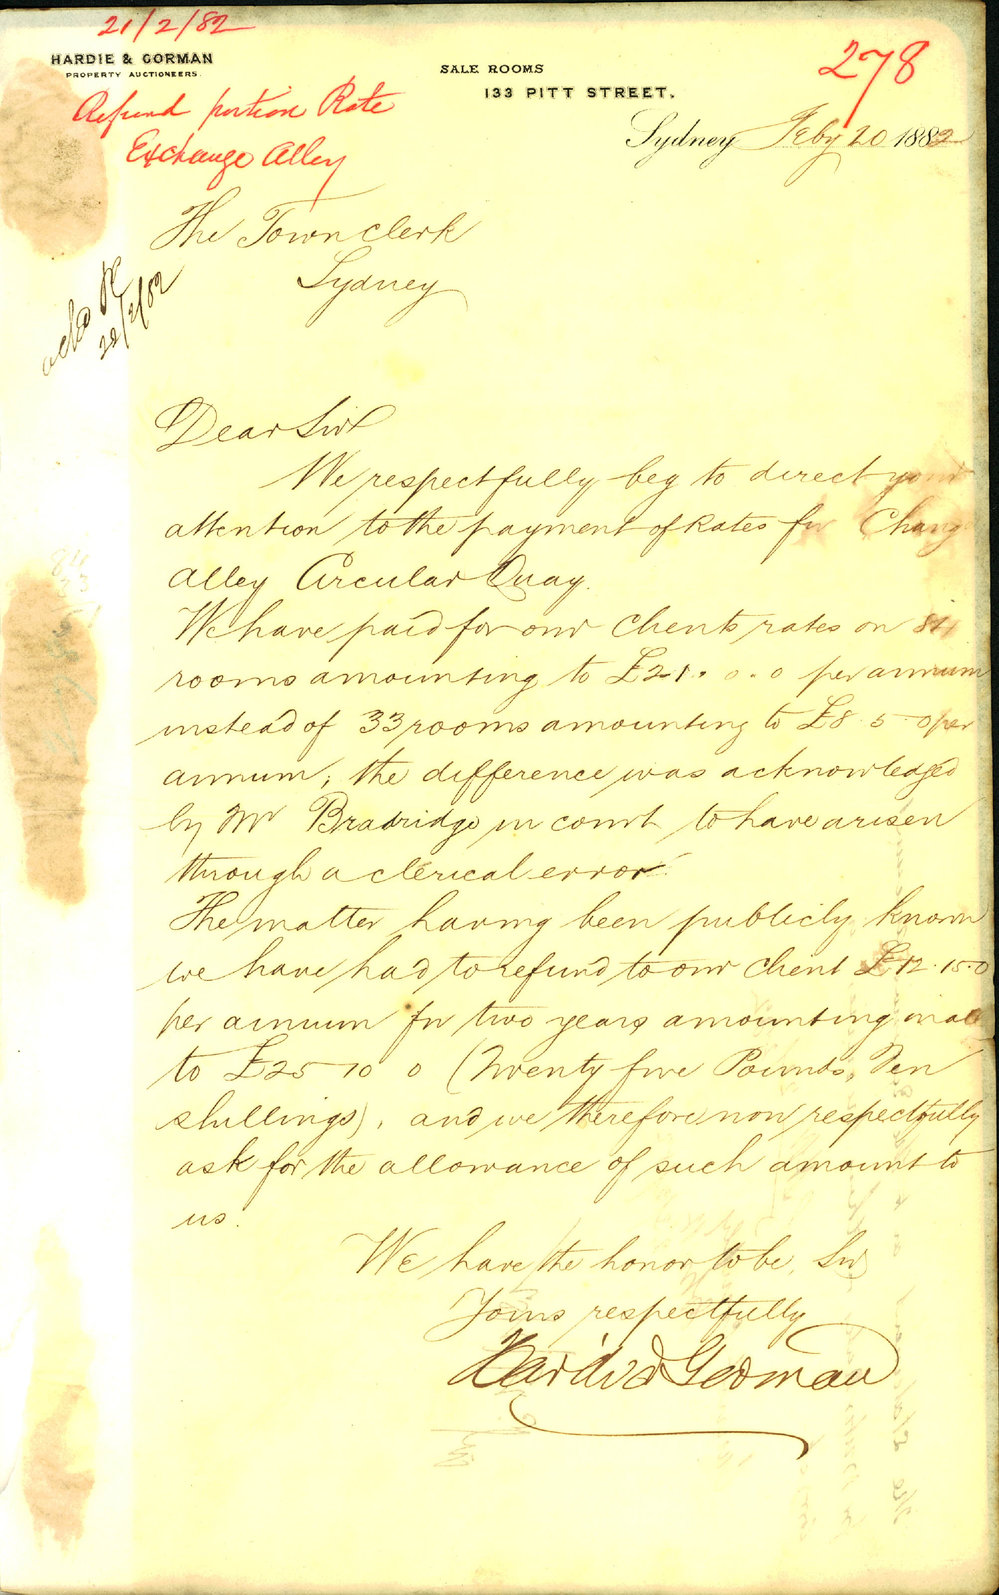 21/2/82
HARDIE & GORMAN
PROPERTY AUCTIONEERS.
SALE ROOMS
133 PITT STREET.
278
Refund portion Rate
Exchange Alley
Sydney Feby 20 1882
The Town Clerk
Sydney
22/2/82
Dear Sir
We respectfully beg to direct your
attention to the payment of Rates for Change
Alley Circular Quay.
We have paid for our Clients rates on 84
rooms amounting to £21. 0. 0 per annum
instead of 33 rooms amounting to £8 5 0 per
annum, the difference was acknowledged
by Mr Bradridge in court to have arisen
through a clerical error.
The matter having been publicly known
we have had to refund to our Client £12.15.0
per annum for two years amounting in all
to £25 10 0 (Twenty five Pounds, Ten
shillings), and we therefore now respectfully
ask for the allowance of such amount to
us.
We have the honor to be, Sir
Yours respectfully
Hardie & Gorman